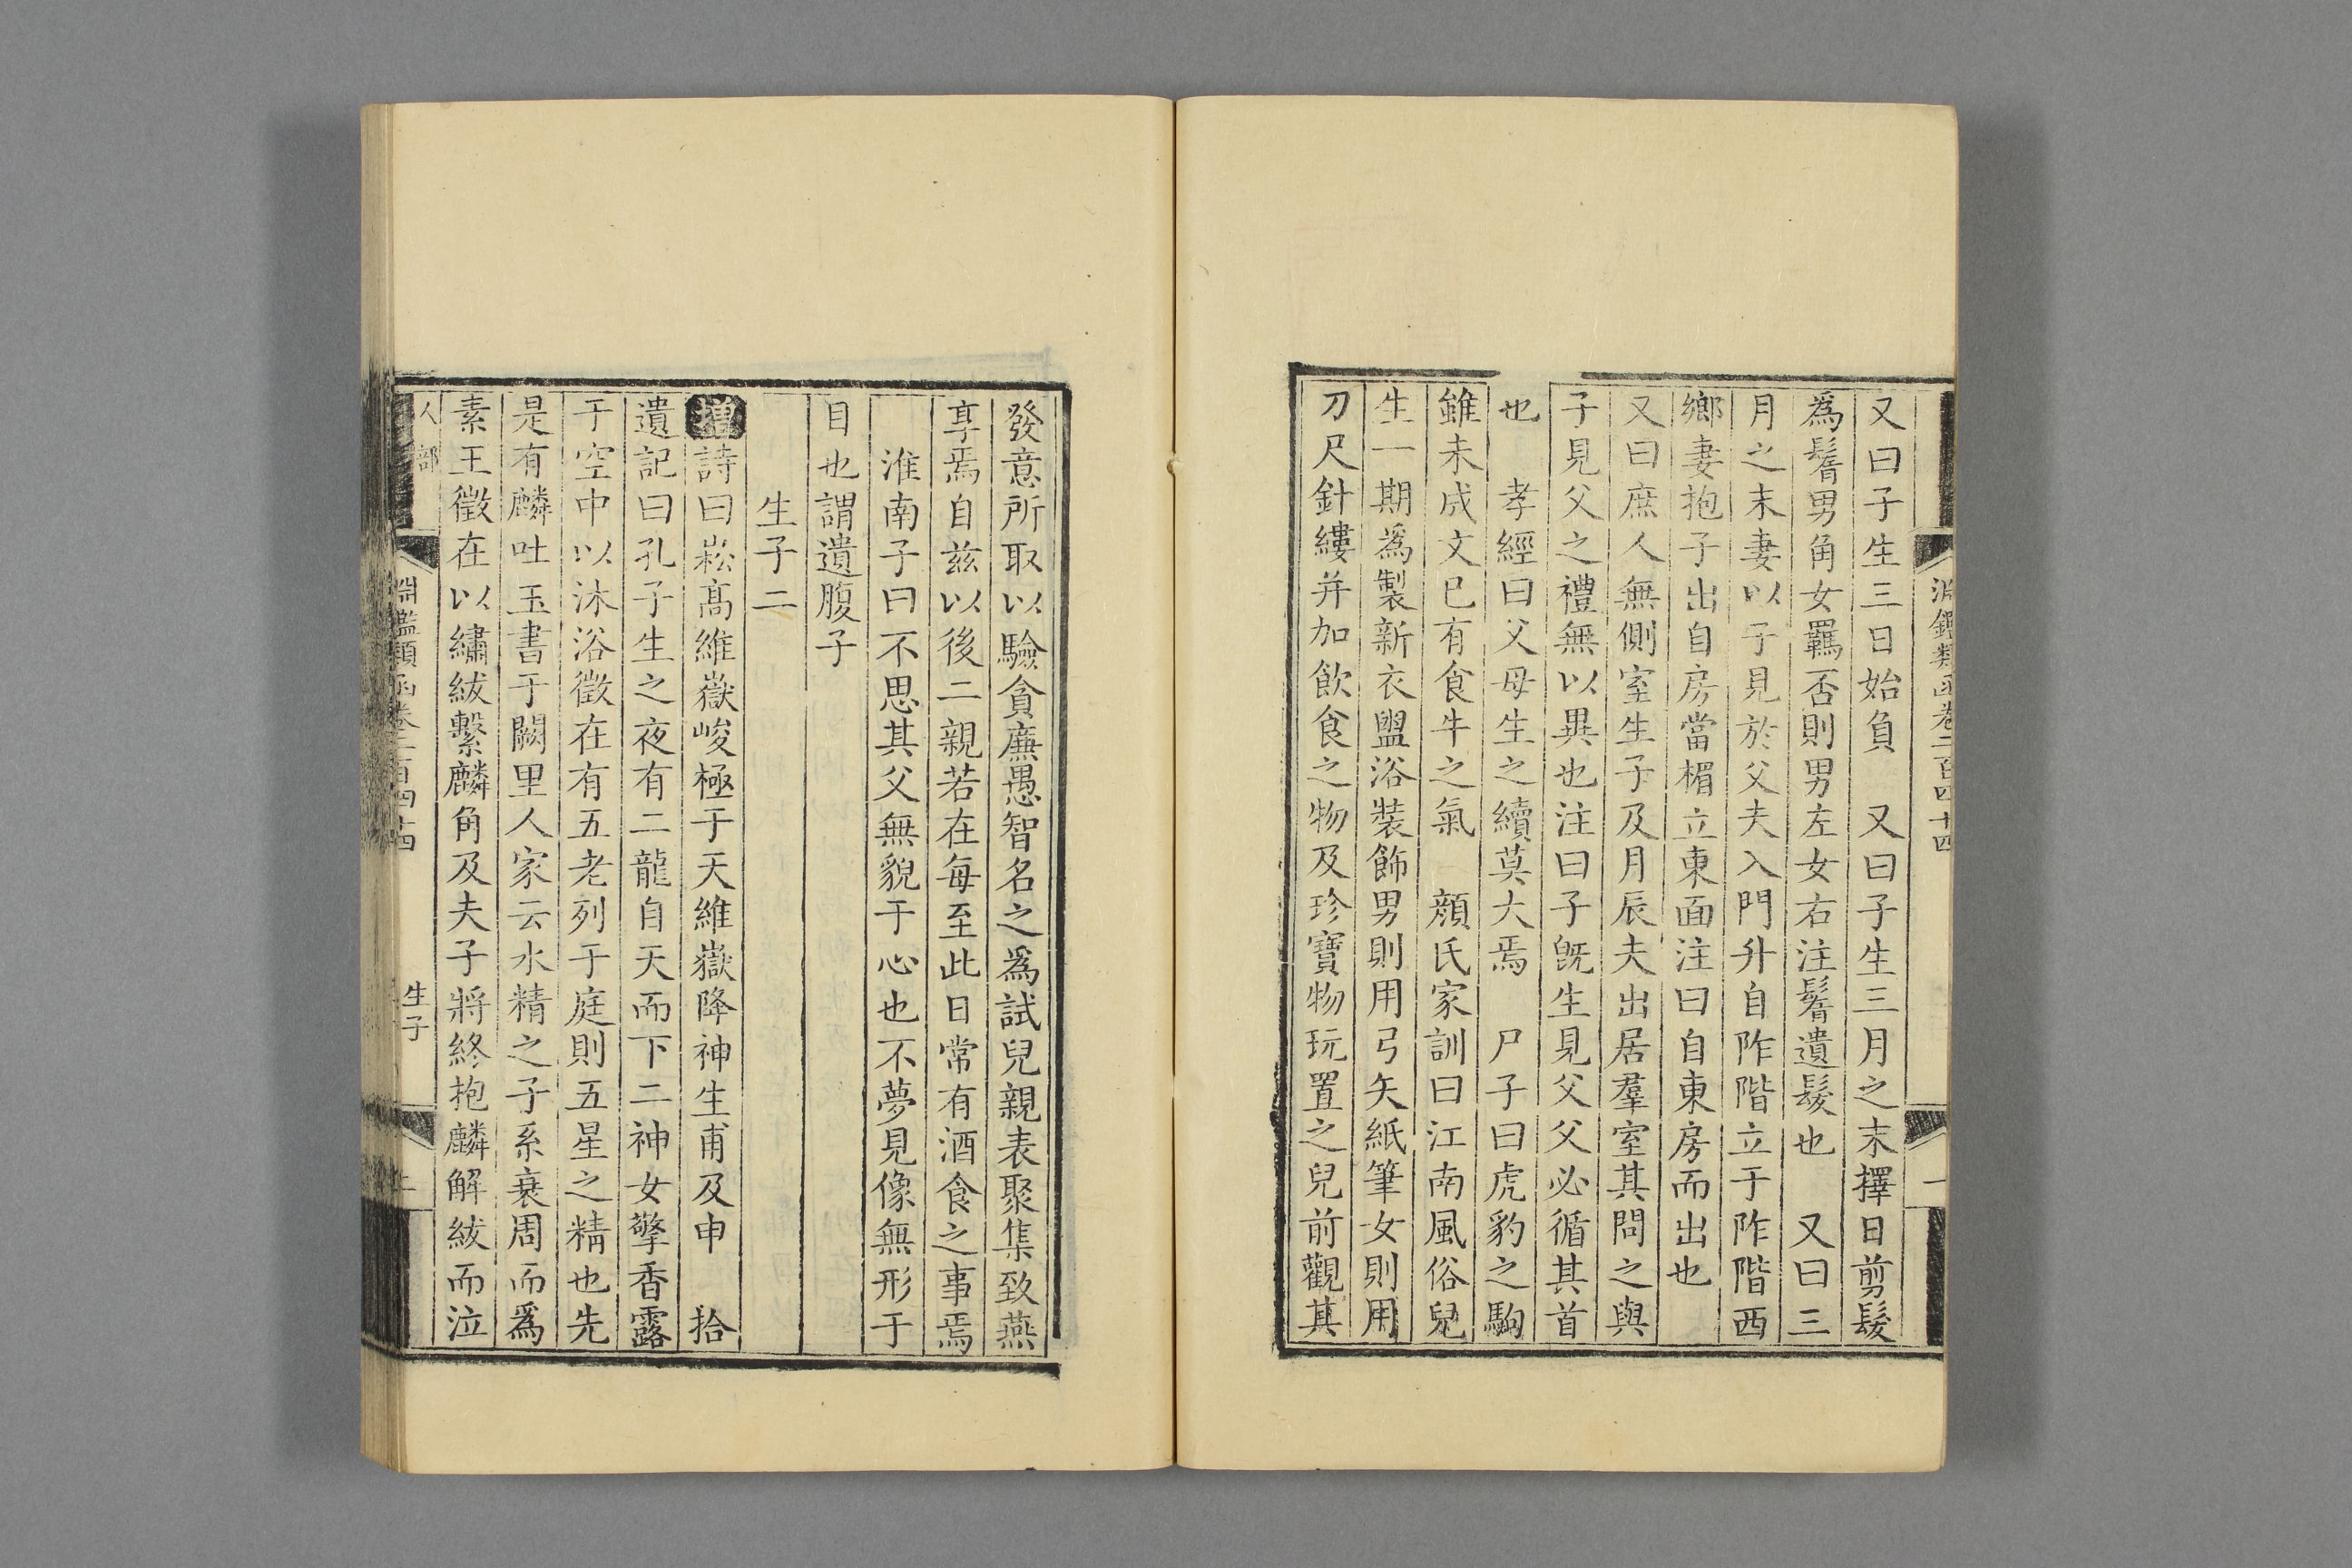 淵鑑類函卷二百四十四
一
又曰子生三日始負　又曰子生三月之末擇日剪髮
為鬌男角女羈否則男左女右注鬌遺髮也　又曰三
月之末妻以子見於父夫入門升自阼階立于阼階西
鄉妻抱子出自房當楣立東面注曰自東房而出也
又曰庶人無側室生子及月辰夫出居羣室其問之與
子見父之禮無以異也注曰子旣生見父父必循其首
也　孝經曰父母生之續莫大焉　尸子曰虎豹之駒
雖未成文已有食牛之氣　顏氏家訓曰江南風俗兒
生一期爲製新衣盥浴裝飾男則用弓矢紙筆女則用
刀尺針縷并加飲食之物及珍寶物玩置之兒前觀其
發意所取以驗貪廉愚智名之爲試兒親表聚集致燕
享焉自茲以後二親若在每至此日常有酒食之事焉
淮南子曰不思其父無貌于心也不夢見像無形于
目也謂遺腹子
生子二
增詩曰崧高維嶽峻極于天維嶽降神生甫及申　拾
遺記曰孔子生之夜有二龍自天而下二神女擎香露
于空中以沐浴徵在有五老列于庭則五星之精也先
是有麟吐玉書于闕里人家云水精之子系衰周而爲
素王徵在以繡紱繫麟角及夫子將終抱麟解紱而泣
人部
淵鑑類函卷二百四十四
生子